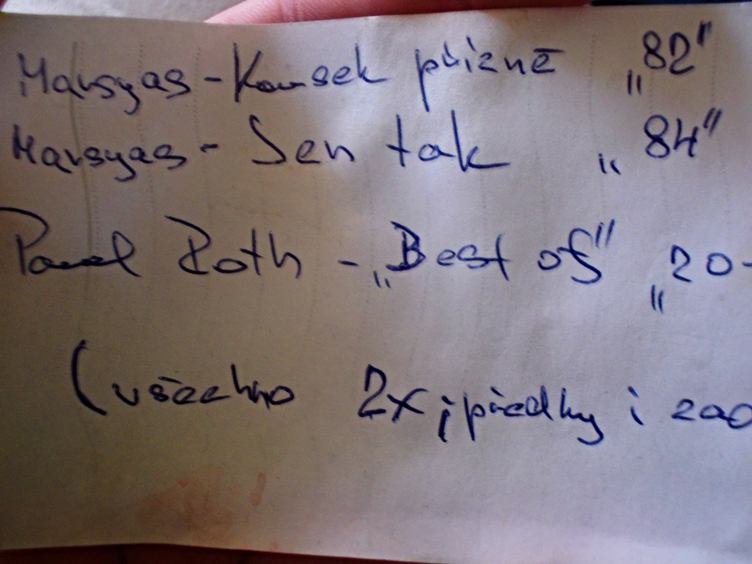 Marsyas - Kousek přízně „82"
Marsyas - Sen tak „84"
Pavel Roth - „Best of" „20-
(všechno 2x, předky i zad